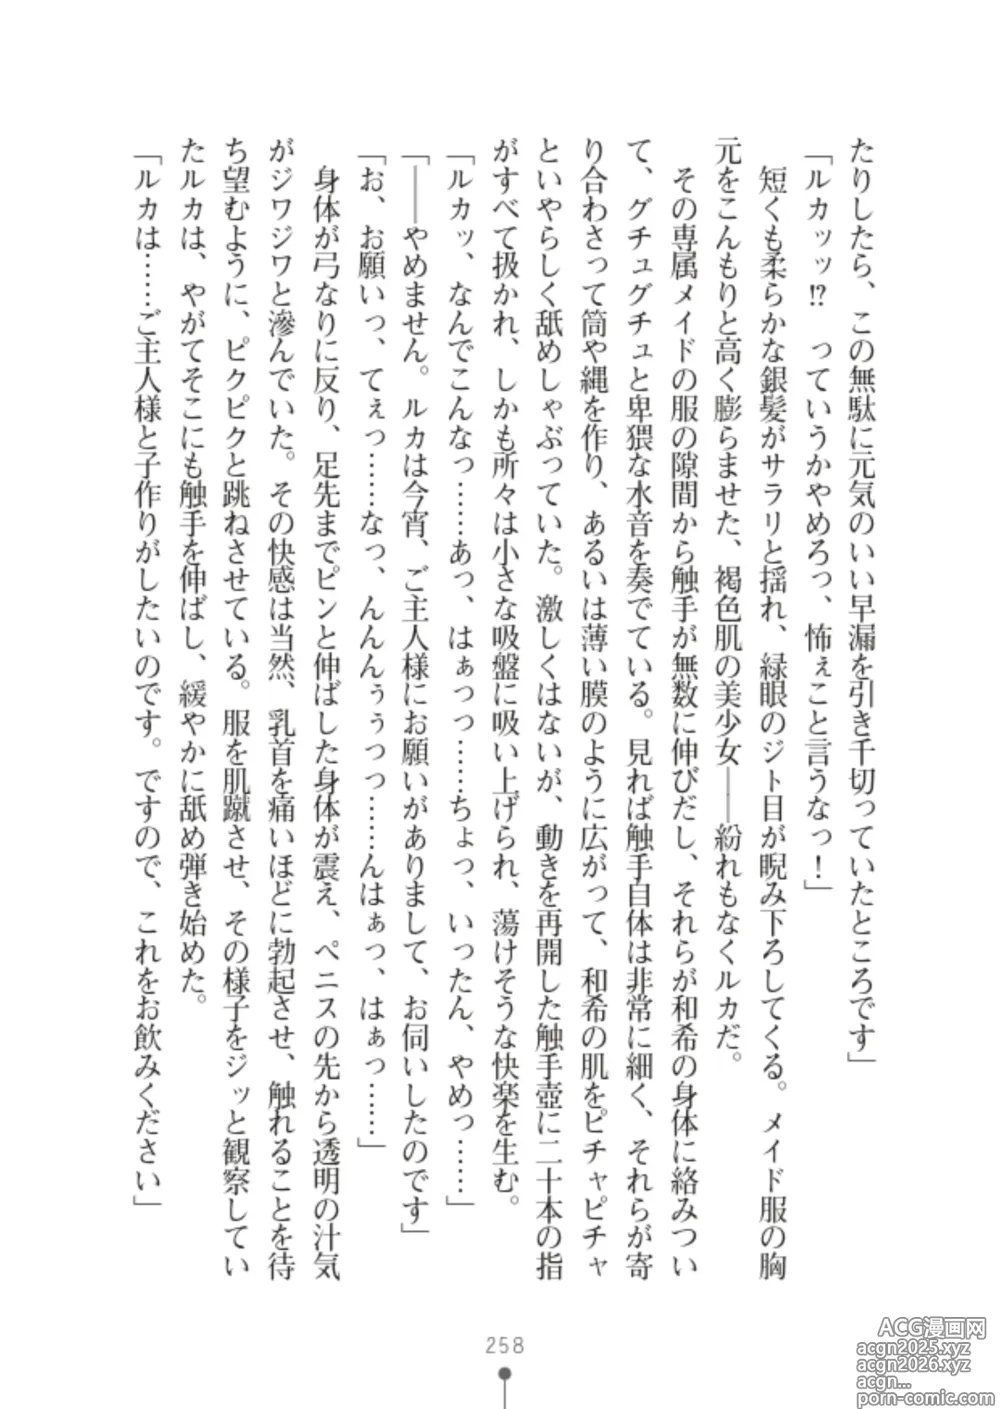 たりしたら、この無駄に元気のいい早漏を引き千切っていたところです」
「ルカッッ!?　っていうかやめろっ、怖ぇこと言うなっ！」
短くも柔らかな銀髪がサラリと揺れ、緑眼のジト目が睨み下ろしてくる。メイド服の胸
元をこんもりと高く膨らませた、褐色肌の美少女――紛れもなくルカだ。
その専属メイドの服の隙間から触手が無数に伸びだし、それらが和希の身体に絡みつい
て、グチュグチュと卑猥な水音を奏でている。見れば触手自体は非常に細く、それらが寄
り合わさって筒や縄を作り、あるいは薄い膜のように広がって、和希の肌をピチャピチャ
といやらしく舐めしゃぶっていた。激しくはないが、動きを再開した触手壺に二十本の指
がすべて扱かれ、しかも所々は小さな吸盤に吸い上げられ、蕩けそうな快楽を生む。
「ルカッ、なんでこんなっ……あっ、はぁっっ……ちょっ、いったん、やめっ……」
「――やめません。ルカは今宵、ご主人様にお願いがありまして、お伺いしたのです」
「お、お願いっ、てぇっ……なっ、んんんぅぅっっ……んはぁっ、はぁっ……」
身体が弓なりに反り、足先までピンと伸ばした身体が震え、ペニスの先から透明の汁気
がジワジワと滲んでいた。その快感は当然、乳首を痛いほどに勃起させ、触れることを待
ち望むように、ピクピクと跳ねさせている。服を肌蹴させ、その様子をジッと観察してい
たルカは、やがてそこにも触手を伸ばし、緩やかに舐め弾き始めた。
「ルカは……ご主人様と子作りがしたいのです。ですので、これをお飲みください」
258
ACG漫画网
acgn2025.xyz
acgn2026.xyz
acgn...
porn-comic.com